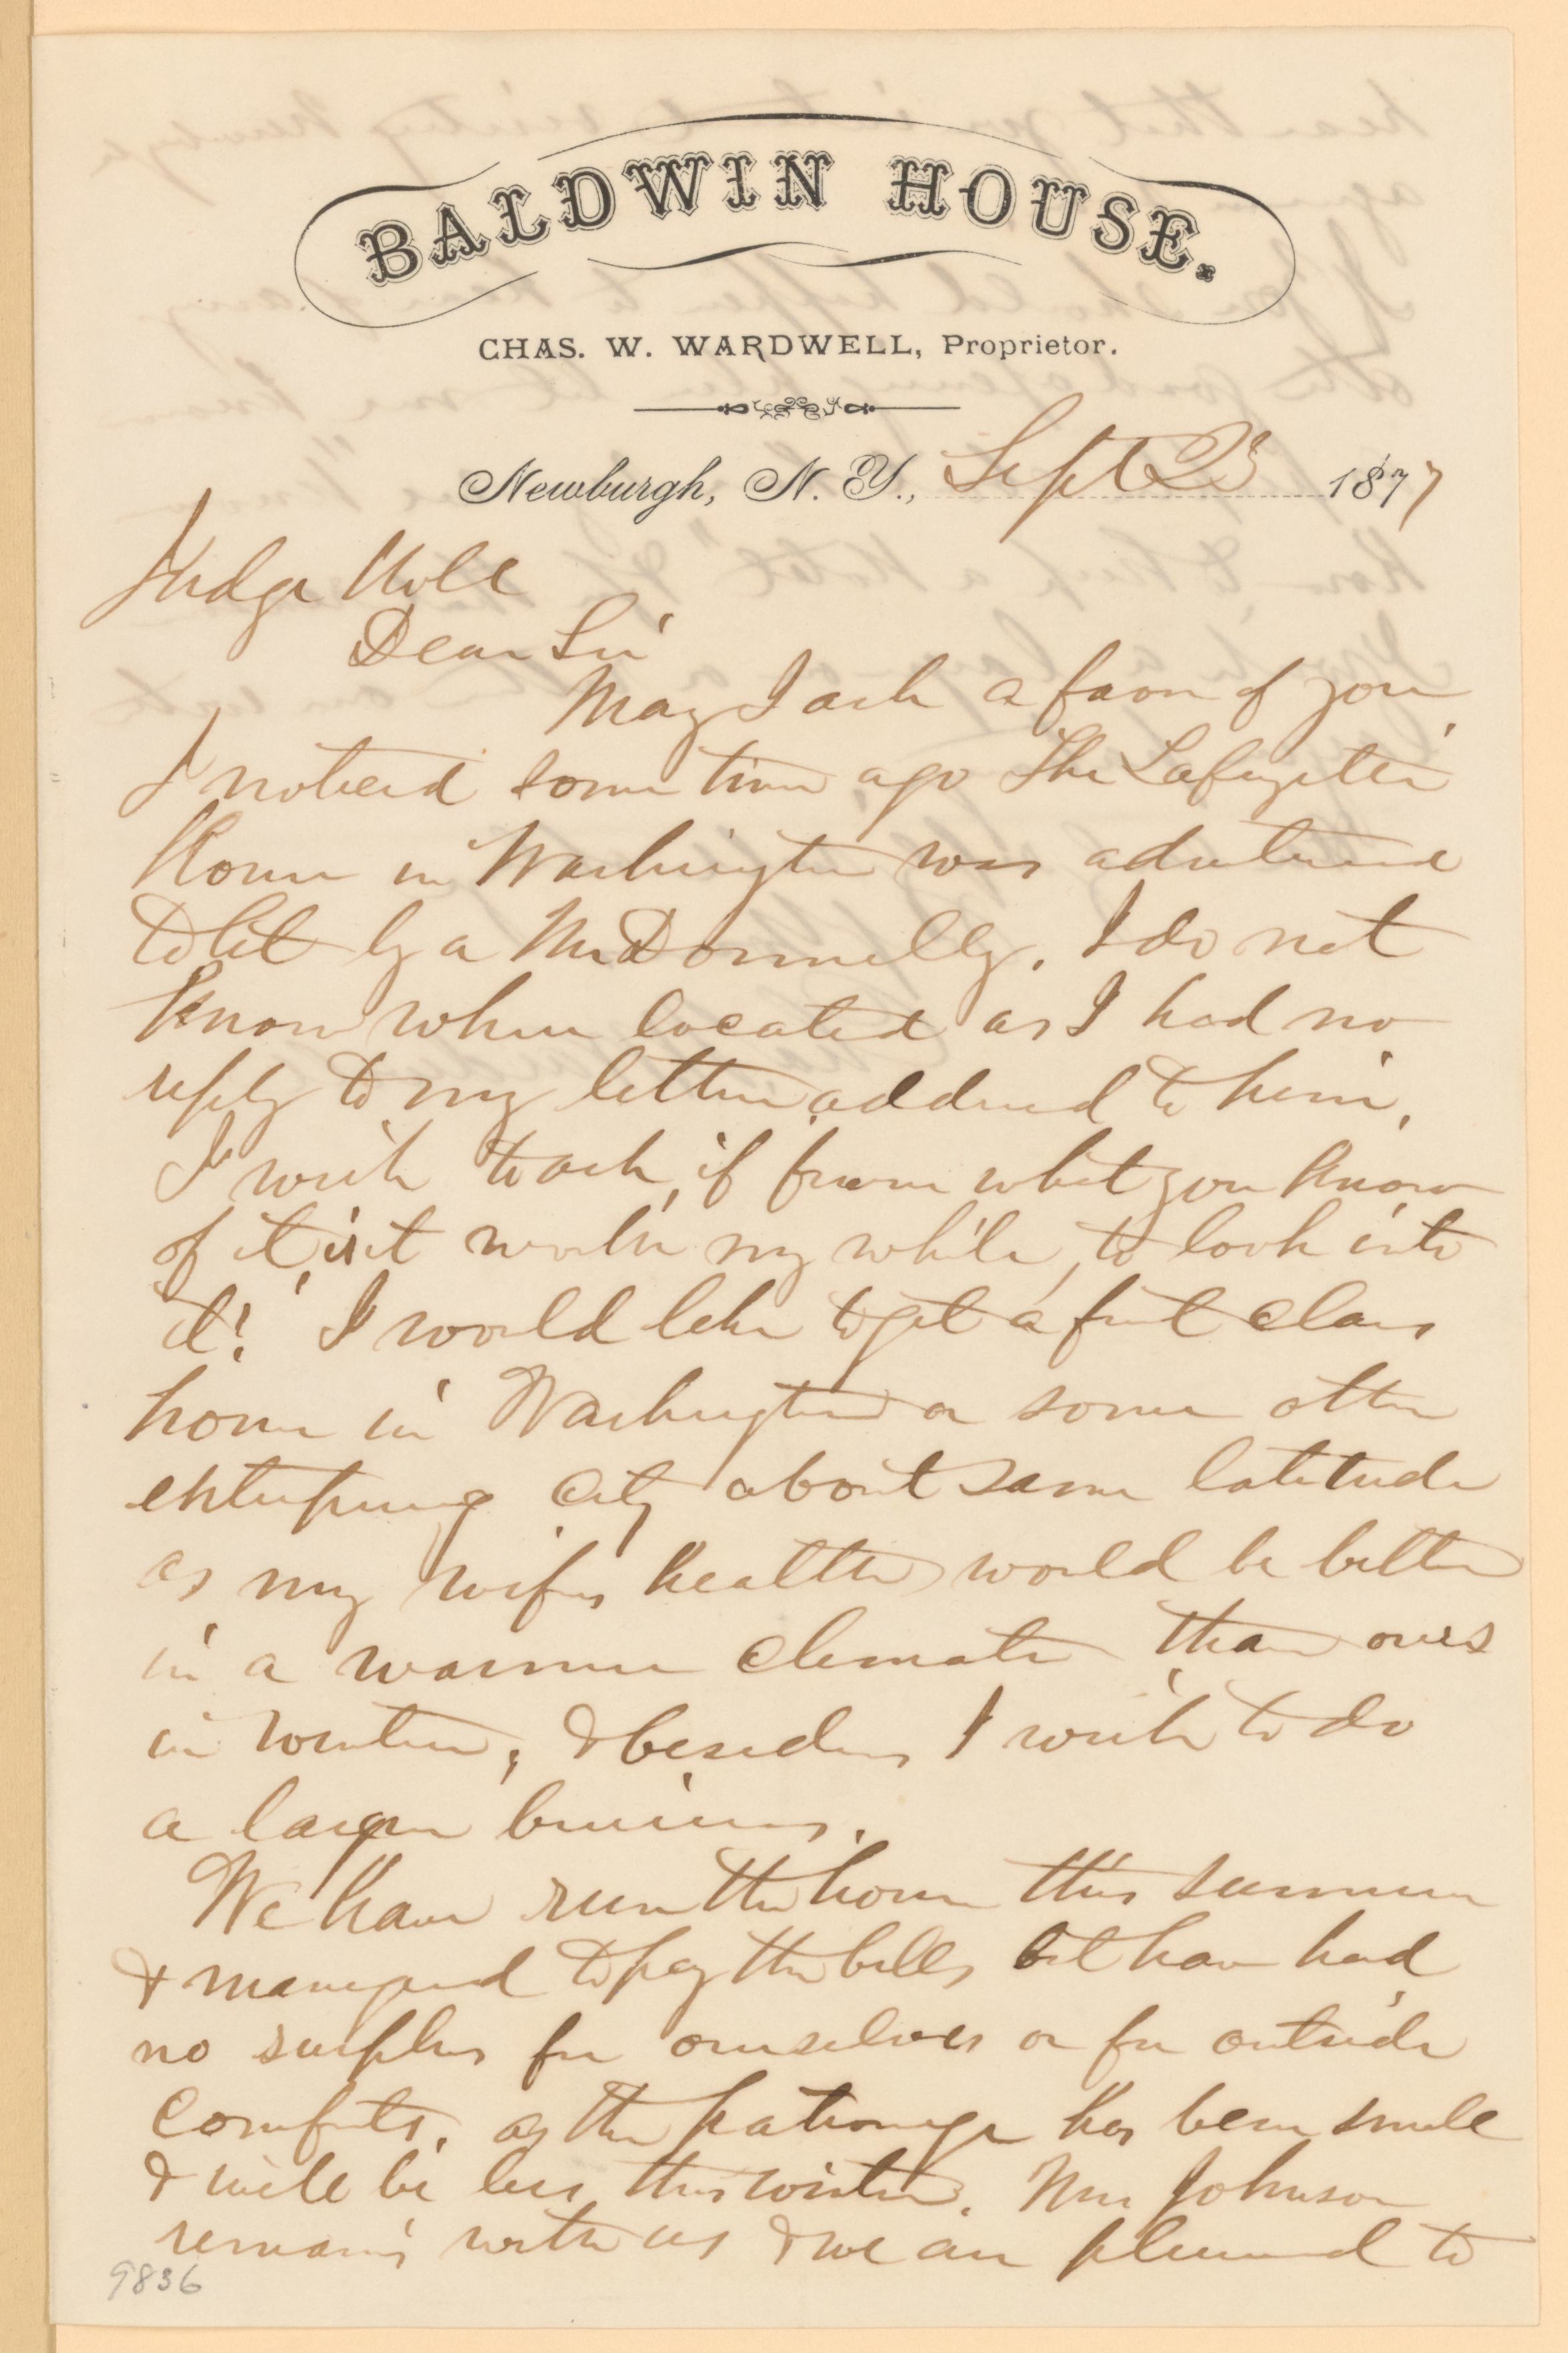 BALDWIN HOUSE.
CHAS. W. WARDWELL, Proprietor.
Newburgh, N. Y., Sept 23 1877
Judge Holt
Dear Sir
May I ask a favor of you
I noticed some time ago The Lafayette
House in Washington was advertised
to let by a Mr Donnelly. I do not
know where located as I had no
reply to my letter addressed to him.
I wish to ask, if from what you know
of it, is it worth my while, to look into
it? I would like to get a first class
house in Washington or some other
enterprising city about same latitude
as my wifes health would be better
in a warmer climate than ours
in winter, & besides I wish to do
a larger business.
We have run the house this summer
& managed to pay the bills but have had
no surplus for ourselves or for outside
comforts, as the patronage has been small
& will be less this winter. Mrs Johnson
remains with us & we are pleased to
9836